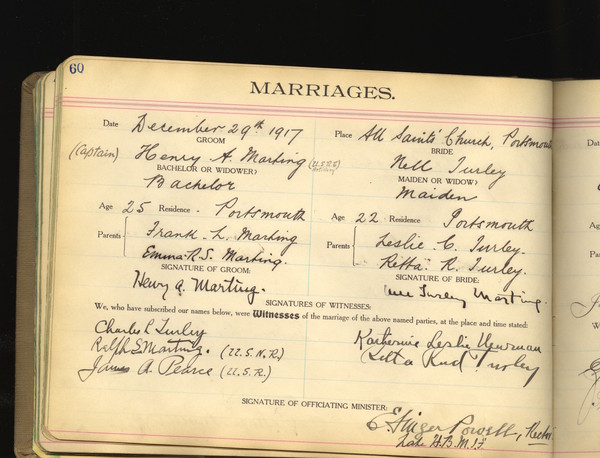 60
MARRIAGES.
Date December 29th 1917 Place All Saints' Church, Portsmouth
GROOM BRIDE
(Captain) Henry A. Marting (U.S.R.) Nell Turley
BACHELOR OR WIDOWER) MAIDEN OR WIDOW)
Bachelor Maiden
Age 25 Residence Portsmouth Age 22 Residence Portsmouth
Parents Frank L. Marting Parents Leslie C. Turley.
Emma R. S. Marting. Retta R. Turley.
SIGNATURE OF GROOM: SIGNATURE OF BRIDE:
Henry A. Marting. Turley Marting.
SIGNATURES OF WITNESSES:
We, who have subscribed our names below, were Witnesses of the marriage of the above named parties, at the place and time stated:
Charles L Turley Katherine Leslie Newman
Ralph S Marting. (U.S.N.R.) Turley
James A. Pearce (U.S.R.)
SIGNATURE OF OFFICIATING MINISTER:
E Ainger Powell, Rector
Late H. B. M. I. F.